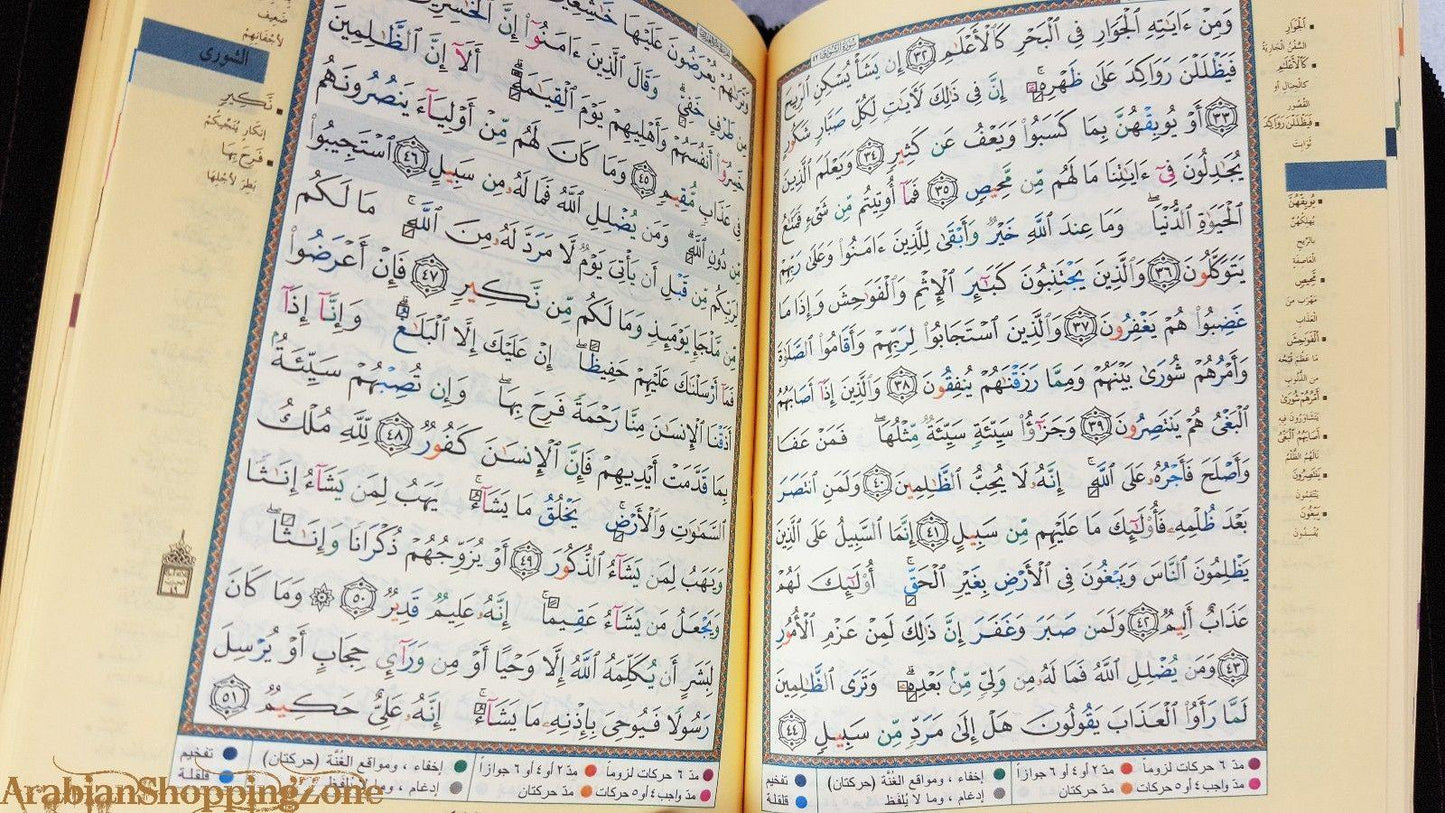 سورة الشورى ٤٢
وَمِنْ ءَايَٰتِهِ ٱلْجَوَارِ فِى ٱلْبَحْرِ كَٱلْأَعْلَٰمِ ٣٢ إِن يَشَأْ يُسْكِنِ ٱلرِّيحَ
فَيَظْلَلْنَ رَوَاكِدَ عَلَىٰ ظَهْرِهِۦٓ إِنَّ فِى ذَٰلِكَ لَءَايَٰتٍ لِّكُلِّ صَبَّارٍ شَكُورٍ
٣٣ أَوْ يُوبِقْهُنَّ بِمَا كَسَبُوا۟ وَيَعْفُ عَن كَثِيرٍ ٣٤ وَيَعْلَمَ ٱلَّذِينَ
يُجَٰدِلُونَ فِىٓ ءَايَٰتِنَا مَا لَهُم مِّن مَّحِيصٍ ٣٥ فَمَآ أُوتِيتُم مِّن شَىْءٍ فَمَتَٰعُ
ٱلْحَيَوٰةِ ٱلدُّنْيَا وَمَا عِندَ ٱللَّهِ خَيْرٌ وَأَبْقَىٰ لِلَّذِينَ ءَامَنُوا۟ وَعَلَىٰ رَبِّهِمْ
يَتَوَكَّلُونَ ٣٦ وَٱلَّذِينَ يَجْتَنِبُونَ كَبَٰٓئِرَ ٱلْإِثْمِ وَٱلْفَوَٰحِشَ وَإِذَا مَا
غَضِبُوا۟ هُمْ يَغْفِرُونَ ٣٧ وَٱلَّذِينَ ٱسْتَجَابُوا۟ لِرَبِّهِمْ وَأَقَامُوا۟ ٱلصَّلَوٰةَ
وَأَمْرُهُمْ شُورَىٰ بَيْنَهُمْ وَمِمَّا رَزَقْنَٰهُمْ يُنفِقُونَ ٣٨ وَٱلَّذِينَ إِذَآ أَصَابَهُمُ
ٱلْبَغْىُ هُمْ يَنتَصِرُونَ ٣٩ وَجَزَٰٓؤُا۟ سَيِّئَةٍ سَيِّئَةٌ مِّثْلُهَا فَمَنْ عَفَا
وَأَصْلَحَ فَأَجْرُهُۥ عَلَى ٱللَّهِ إِنَّهُۥ لَا يُحِبُّ ٱلظَّٰلِمِينَ ٤٠ وَلَمَنِ ٱنتَصَرَ
بَعْدَ ظُلْمِهِۦ فَأُو۟لَٰٓئِكَ مَا عَلَيْهِم مِّن سَبِيلٍ ٤١ إِنَّمَا ٱلسَّبِيلُ عَلَى ٱلَّذِينَ
يَظْلِمُونَ ٱلنَّاسَ وَيَبْغُونَ فِى ٱلْأَرْضِ بِغَيْرِ ٱلْحَقِّ أُو۟لَٰٓئِكَ لَهُمْ
عَذَابٌ أَلِيمٌ ٤٢ وَلَمَن صَبَرَ وَغَفَرَ إِنَّ ذَٰلِكَ لَمِنْ عَزْمِ ٱلْأُمُورِ
٤٣ وَمَن يُضْلِلِ ٱللَّهُ فَمَا لَهُۥ مِن وَلِىٍّ مِّنۢ بَعْدِهِۦ وَتَرَى ٱلظَّٰلِمِينَ
لَمَّا رَأَوُا۟ ٱلْعَذَابَ يَقُولُونَ هَلْ إِلَىٰ مَرَدٍّ مِّن سَبِيلٍ ٤٤
الجوار
السفن الجارية
كالأعلام
كالجبال أو
القصور
فيظللن رواكد
ثوابت
يوبقهن
يهلكهن
بالريح
العاصفة
محيص
مهرب من
العذاب
الفواحش
ما عظم قبحه
من الذنوب
أمرهم شورى
يتشاورون فيه
أصابهم البغي
نالهم الظلم
ينتصرون
ينتقمون
يبغون
يفسدون
مدّ ٦ حركات لزوماً مدّ ٢ أو ٤ أو ٦ جوازاً إخفاء ، ومواقع الغُنَّة (حركتان) تفخيم
مدّ واجب ٤ أو ٥ حركات مدّ حركتان إدغام ، وما لا يُلفَظ قلقلة
وَتَرَىٰهُمْ يُعْرَضُونَ عَلَيْهَا خَٰشِعِينَ
مِن طَرْفٍ خَفِىٍّ وَقَالَ ٱلَّذِينَ ءَامَنُوٓا۟ إِنَّ ٱلْخَٰسِرِينَ
خَسِرُوٓا۟ أَنفُسَهُمْ وَأَهْلِيهِمْ يَوْمَ ٱلْقِيَٰمَةِ أَلَآ إِنَّ ٱلظَّٰلِمِينَ
فِى عَذَابٍ مُّقِيمٍ ٤٥ وَمَا كَانَ لَهُم مِّنْ أَوْلِيَآءَ يَنصُرُونَهُم
مِّن دُونِ ٱللَّهِ وَمَن يُضْلِلِ ٱللَّهُ فَمَا لَهُۥ مِن سَبِيلٍ ٤٦ ٱسْتَجِيبُوا۟
لِرَبِّكُم مِّن قَبْلِ أَن يَأْتِىَ يَوْمٌ لَّا مَرَدَّ لَهُۥ مِنَ ٱللَّهِ مَا لَكُم
مِّن مَّلْجَإٍ يَوْمَئِذٍ وَمَا لَكُم مِّن نَّكِيرٍ ٤٧ فَإِنْ أَعْرَضُوا۟
فَمَآ أَرْسَلْنَٰكَ عَلَيْهِمْ حَفِيظًا إِنْ عَلَيْكَ إِلَّا ٱلْبَلَٰغُ وَإِنَّآ إِذَآ
أَذَقْنَا ٱلْإِنسَٰنَ مِنَّا رَحْمَةً فَرِحَ بِهَا وَإِن تُصِبْهُمْ سَيِّئَةٌۢ
بِمَا قَدَّمَتْ أَيْدِيهِمْ فَإِنَّ ٱلْإِنسَٰنَ كَفُورٌ ٤٨ لِّلَّهِ مُلْكُ
ٱلسَّمَٰوَٰتِ وَٱلْأَرْضِ يَخْلُقُ مَا يَشَآءُ يَهَبُ لِمَن يَشَآءُ إِنَٰثًا
وَيَهَبُ لِمَن يَشَآءُ ٱلذُّكُورَ ٤٩ أَوْ يُزَوِّجُهُمْ ذُكْرَانًا وَإِنَٰثًا
وَيَجْعَلُ مَن يَشَآءُ عَقِيمًا إِنَّهُۥ عَلِيمٌ قَدِيرٌ ٥٠ ۞ وَمَا كَانَ
لِبَشَرٍ أَن يُكَلِّمَهُ ٱللَّهُ إِلَّا وَحْيًا أَوْ مِن وَرَآئِ حِجَابٍ أَوْ يُرْسِلَ
رَسُولًا فَيُوحِىَ بِإِذْنِهِۦ مَا يَشَآءُ إِنَّهُۥ عَلِىٌّ حَكِيمٌ ٥١
ضعيف
لأجفانهم
الشورى
نكير
إنكار ينجيكم
فرح بها
بطر لأجلها
مدّ ٦ حركات لزوماً مدّ ٢ أو ٤ أو ٦ جوازاً إخفاء ، ومواقع الغُنَّة (حركتان) تفخيم
مدّ واجب ٤ أو ٥ حركات مدّ حركتان إدغام ، وما لا يُلفَظ قلقلة
ArabianShoppingZone